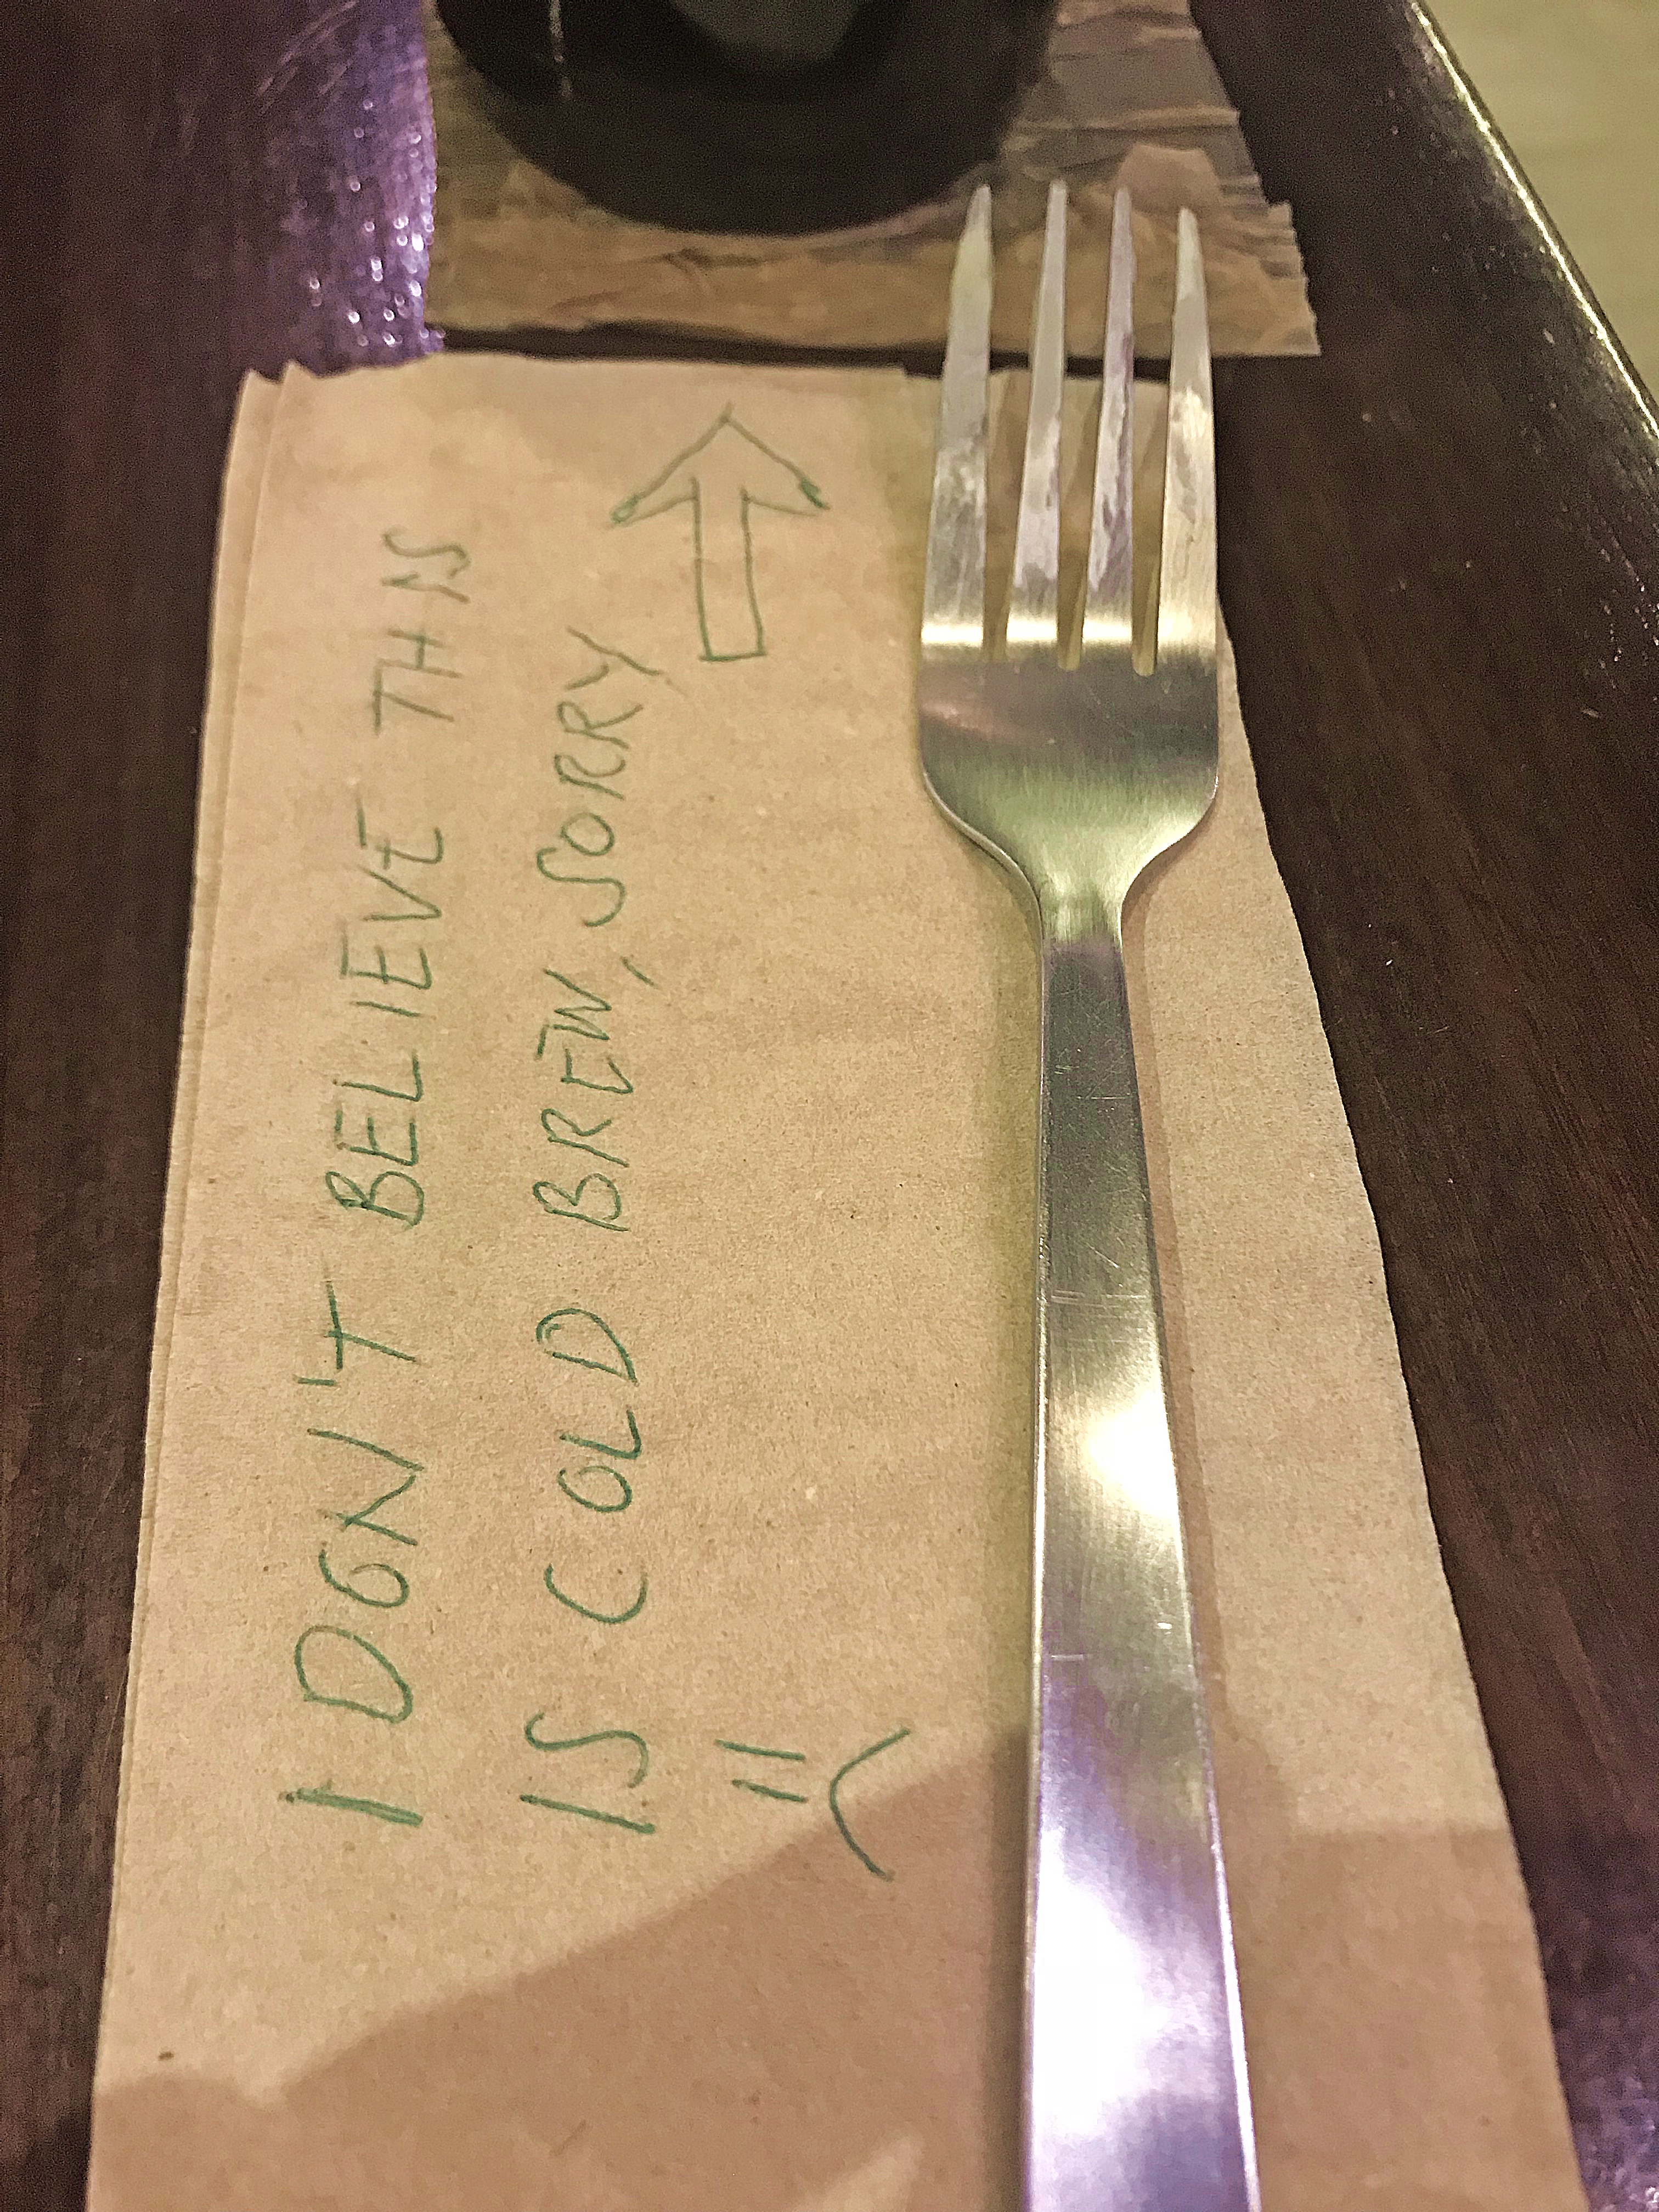 I DON'T BELIEVE THIS
IS COLD BREW, SORRY